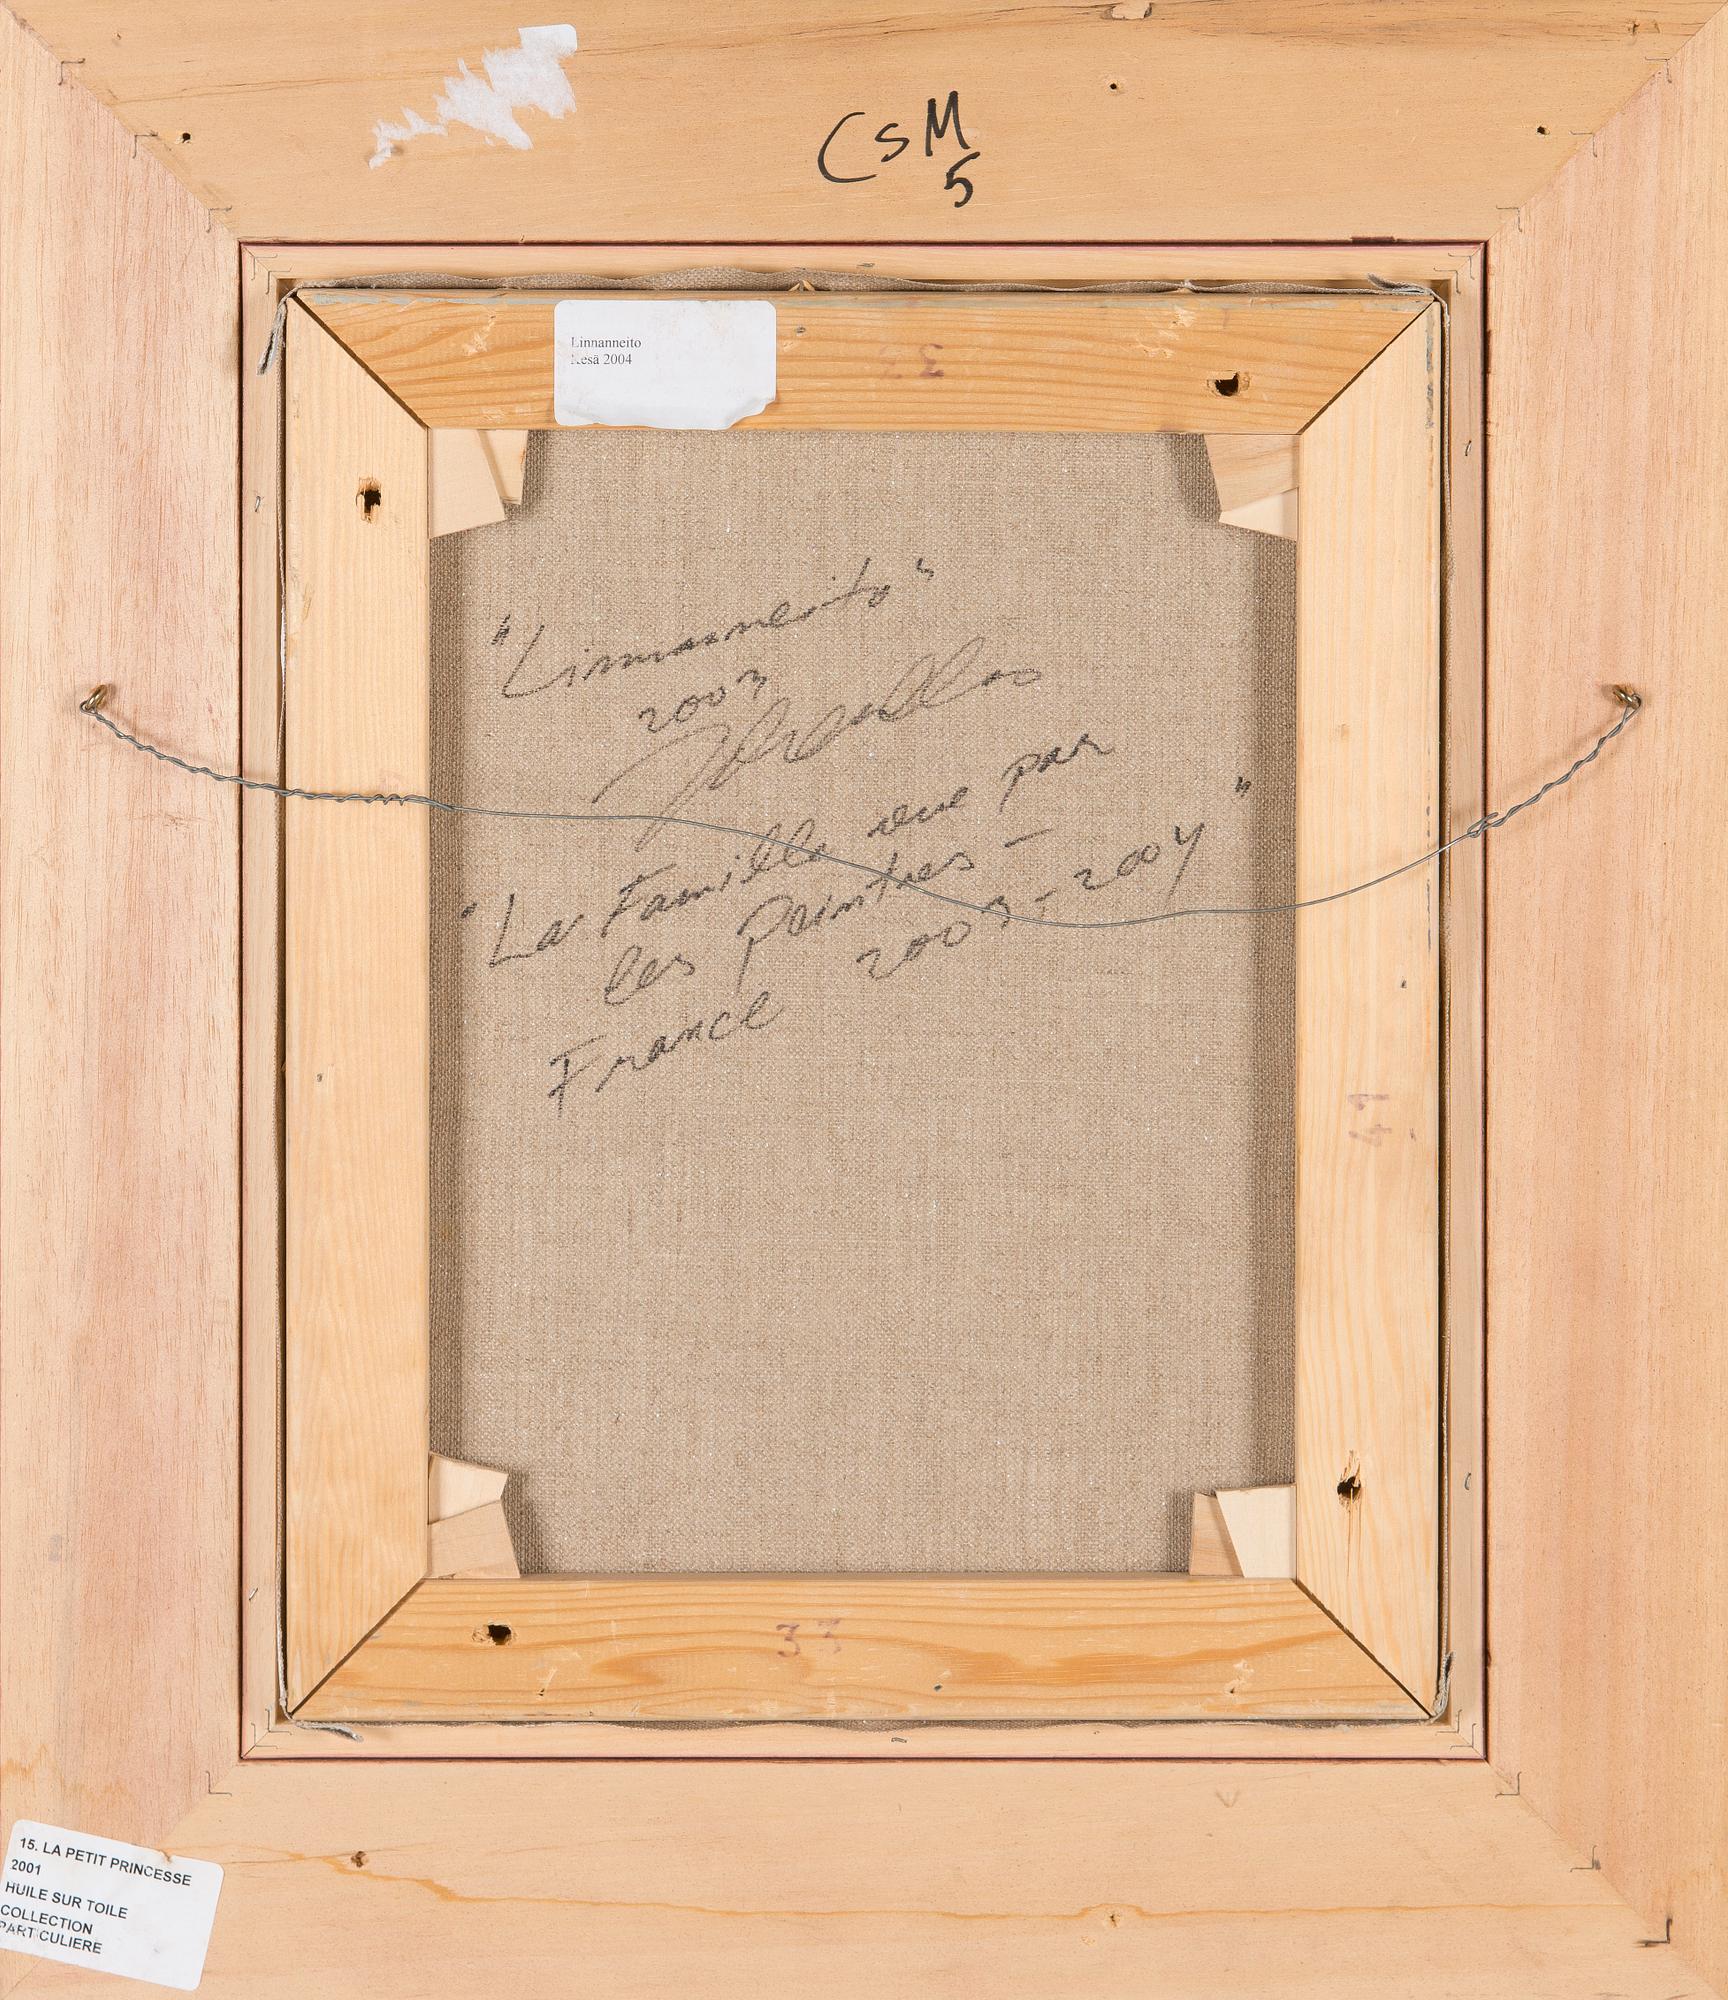 CSM
5
Linnanneito
Kesä 2004
33
"Linnanneito"
2003
"La Famille vue par
les Peintres -
France 2003-2004"
41
33
15. LA PETIT PRINCESSE
2001
HUILE SUR TOILE
COLLECTION
PARTICULIERE